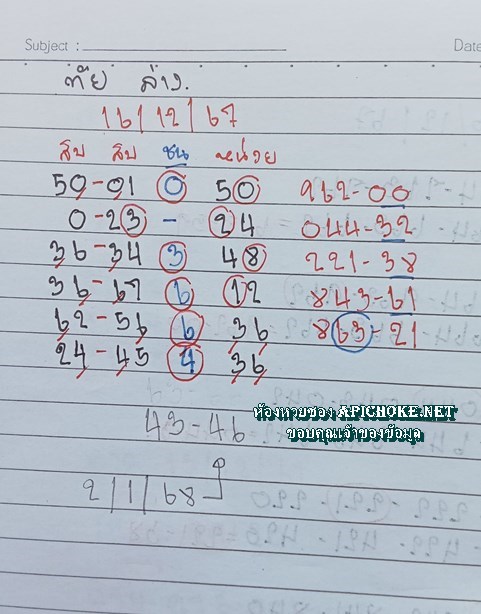 Subject : Date
ท้าย ล่าง.
16/12/67
สิบ สิบ ชน หน่วย
50-01 0 50 962-00
0-23 - 24 044-32
36-34 3 48 221-38
36-67 6 12 843-61
62-56 6 36 863-21
24-45 4 36
43-46
ห้องหวยซอง APICHOKE.NET
ขอบคุณเจ้าของข้อมูล
2/1/68